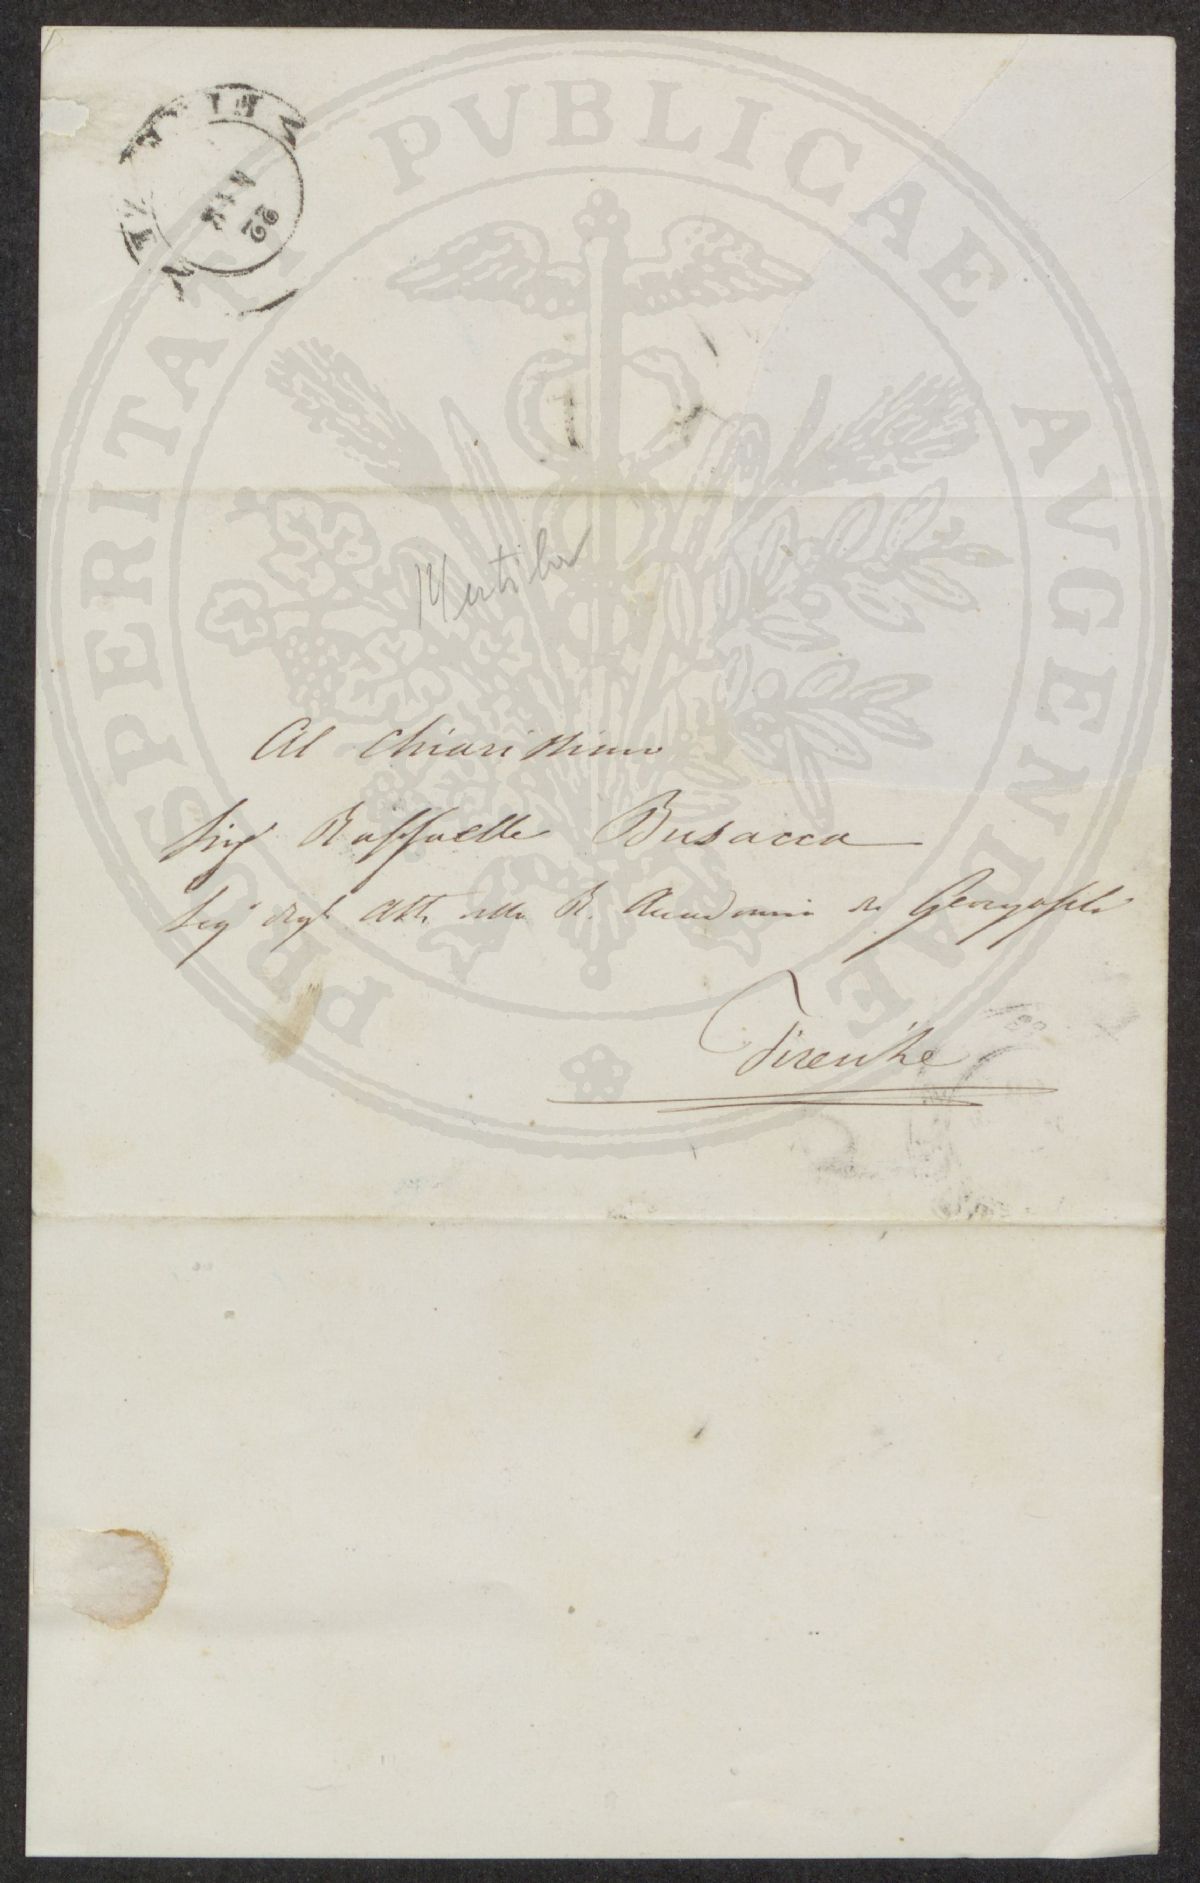 PROSPERITATI PVBLICAE AVGENDAE
22
Al Chiarissimo
Sigr Raffaelle Busacca
Segr degli Atti della R. Accademia dei Georgofili
Firenze